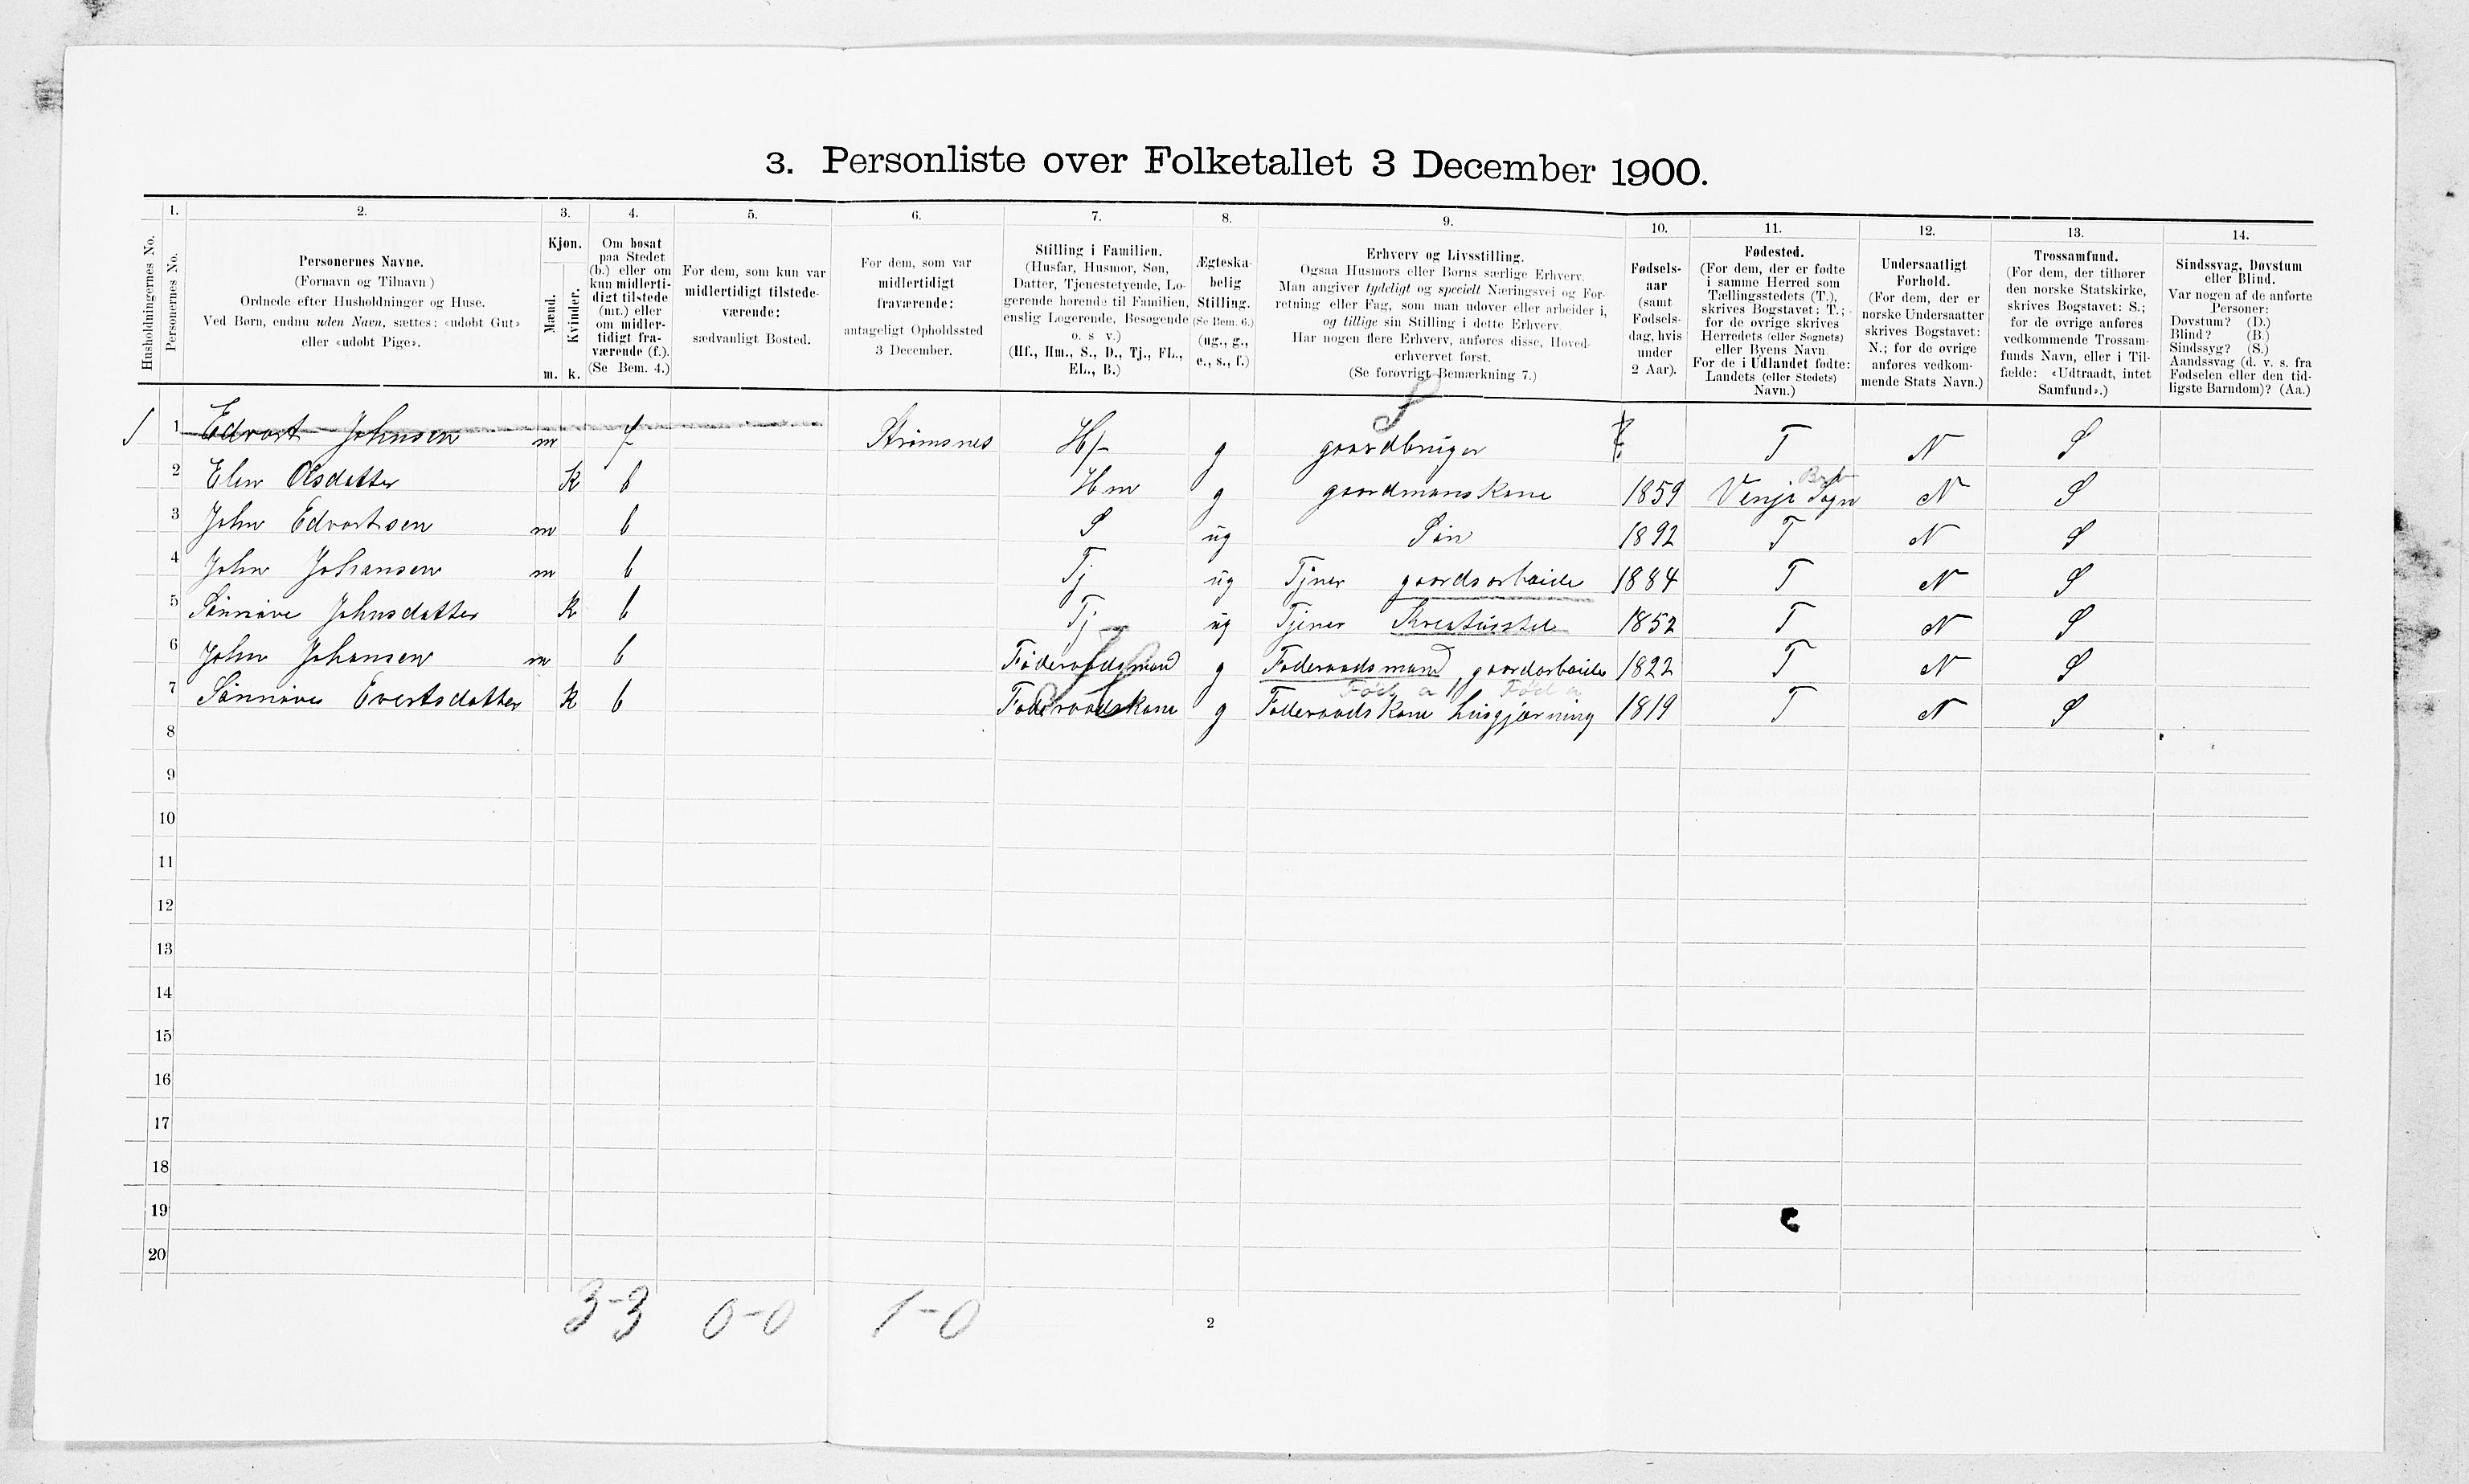 3. Personliste over Folketallet 3 December 1900.
1. 2. 3. 4. 5. 6. 7. 8. 9. 10. 11. 12. 13. 14.
Husholdningernes No.
Personernes No.
Personernes Navne.
(Fornavn og Tilnavn)
Ordnede efter Husholdninger og Huse.
Ved Børn, endnu uden Navn, sættes: «udøbt Gut»
eller «udøbt Pige».
Kjøn.
Mænd.
Kvinder.
m. k.
Om bosat
paa Stedet
(b.) eller om
kun midlerti-
digt tilstede
(mt.) eller
om midler-
tidigt fra-
værende (f.).
(Se Bem. 4.)
For dem, som kun var
midlertidigt tilstede-
værende:
sædvanligt Bosted.
For dem, som var
midlertidigt
fraværende:
antageligt Opholdssted
3 December.
Stilling i Familien.
(Husfar, Husmor, Søn,
Datter, Tjenestetyende, Lo-
gerende hørende til Familien,
enslig Logerende, Besøgende
o. s. v.)
(Hf., Hm., S., D., Tj., FL.,
EL., B.)
Ægteska-
belig
Stilling.
(Se Bem. 6.)
(ug., g.,
e., s., f.)
Erhverv og Livsstilling.
Ogsaa Husmors eller Børns særlige Erhverv.
Man angiver tydeligt og specielt Næringsvei og For-
retning eller Fag, som man udøver eller arbeider i,
og tillige sin Stilling i dette Erhverv.
Har nogen flere Erhverv, anføres disse, Hoved-
erhvervet først.
(Se forøvrigt Bemærkning 7.)
Fødsels-
aar
(samt
Fødsels-
dag, hvis
under
2 Aar).
Fødested.
(For dem, der er fødte
i samme Herred som
Tællingsstedets (T.),
skrives Bogstavet: T.;
for de øvrige skrives
Herredets (eller Sognets)
eller Byens Navn.
For de i Udlandet fødte:
Landets (eller Stedets)
Navn.)
Undersaatligt
Forhold.
(For dem, der er
norske Undersaatter
skrives Bogstavet:
N.; for de øvrige
anføres vedkom-
mende Stats Navn.)
Trossamfund.
(For dem, der tilhører
den norske Statskirke,
skrives Bogstavet: S.;
for de øvrige anføres
vedkommende Trossam-
funds Navn, eller i Til-
fælde: «Udtraadt, intet
Samfund».)
Sindssvag, Døvstum
eller Blind.
Var nogen af de anførte
Personer:
Døvstum? (D.)
Blind? (B.)
Sindssyg? (S.)
Aandssvag (d. v. s. fra
Fødselen eller den tid-
ligste Barndom)? (Aa.)
1 Edvart Johnsen m f Strømsnes Hf g gaardbruger T N S
2 Elen Olsdatter K b Hm g gaardmans kone 1859 Venje Sogn N S
3 John Edvartsen m b S ug Søn 1892 T N S
4 John Johansen m b Tj ug Tjner gaardsarbeide 1884 T N S
5 Sønnøve Johnsdatter K b Tj ug Tjener Kreaturstel 1852 T N S
6 John Johansen m b Føderaadsmand g Føderaadsmand, gaardarbeide 1822 T N S
7 Sønnøve Evertsdatter K b Føderaadskone g Føderaads Kone husgjærning 1819 T N S
8
9
10
11
12
13
14
15
16
17
18
19
20
3-3 0-0 1-0
2